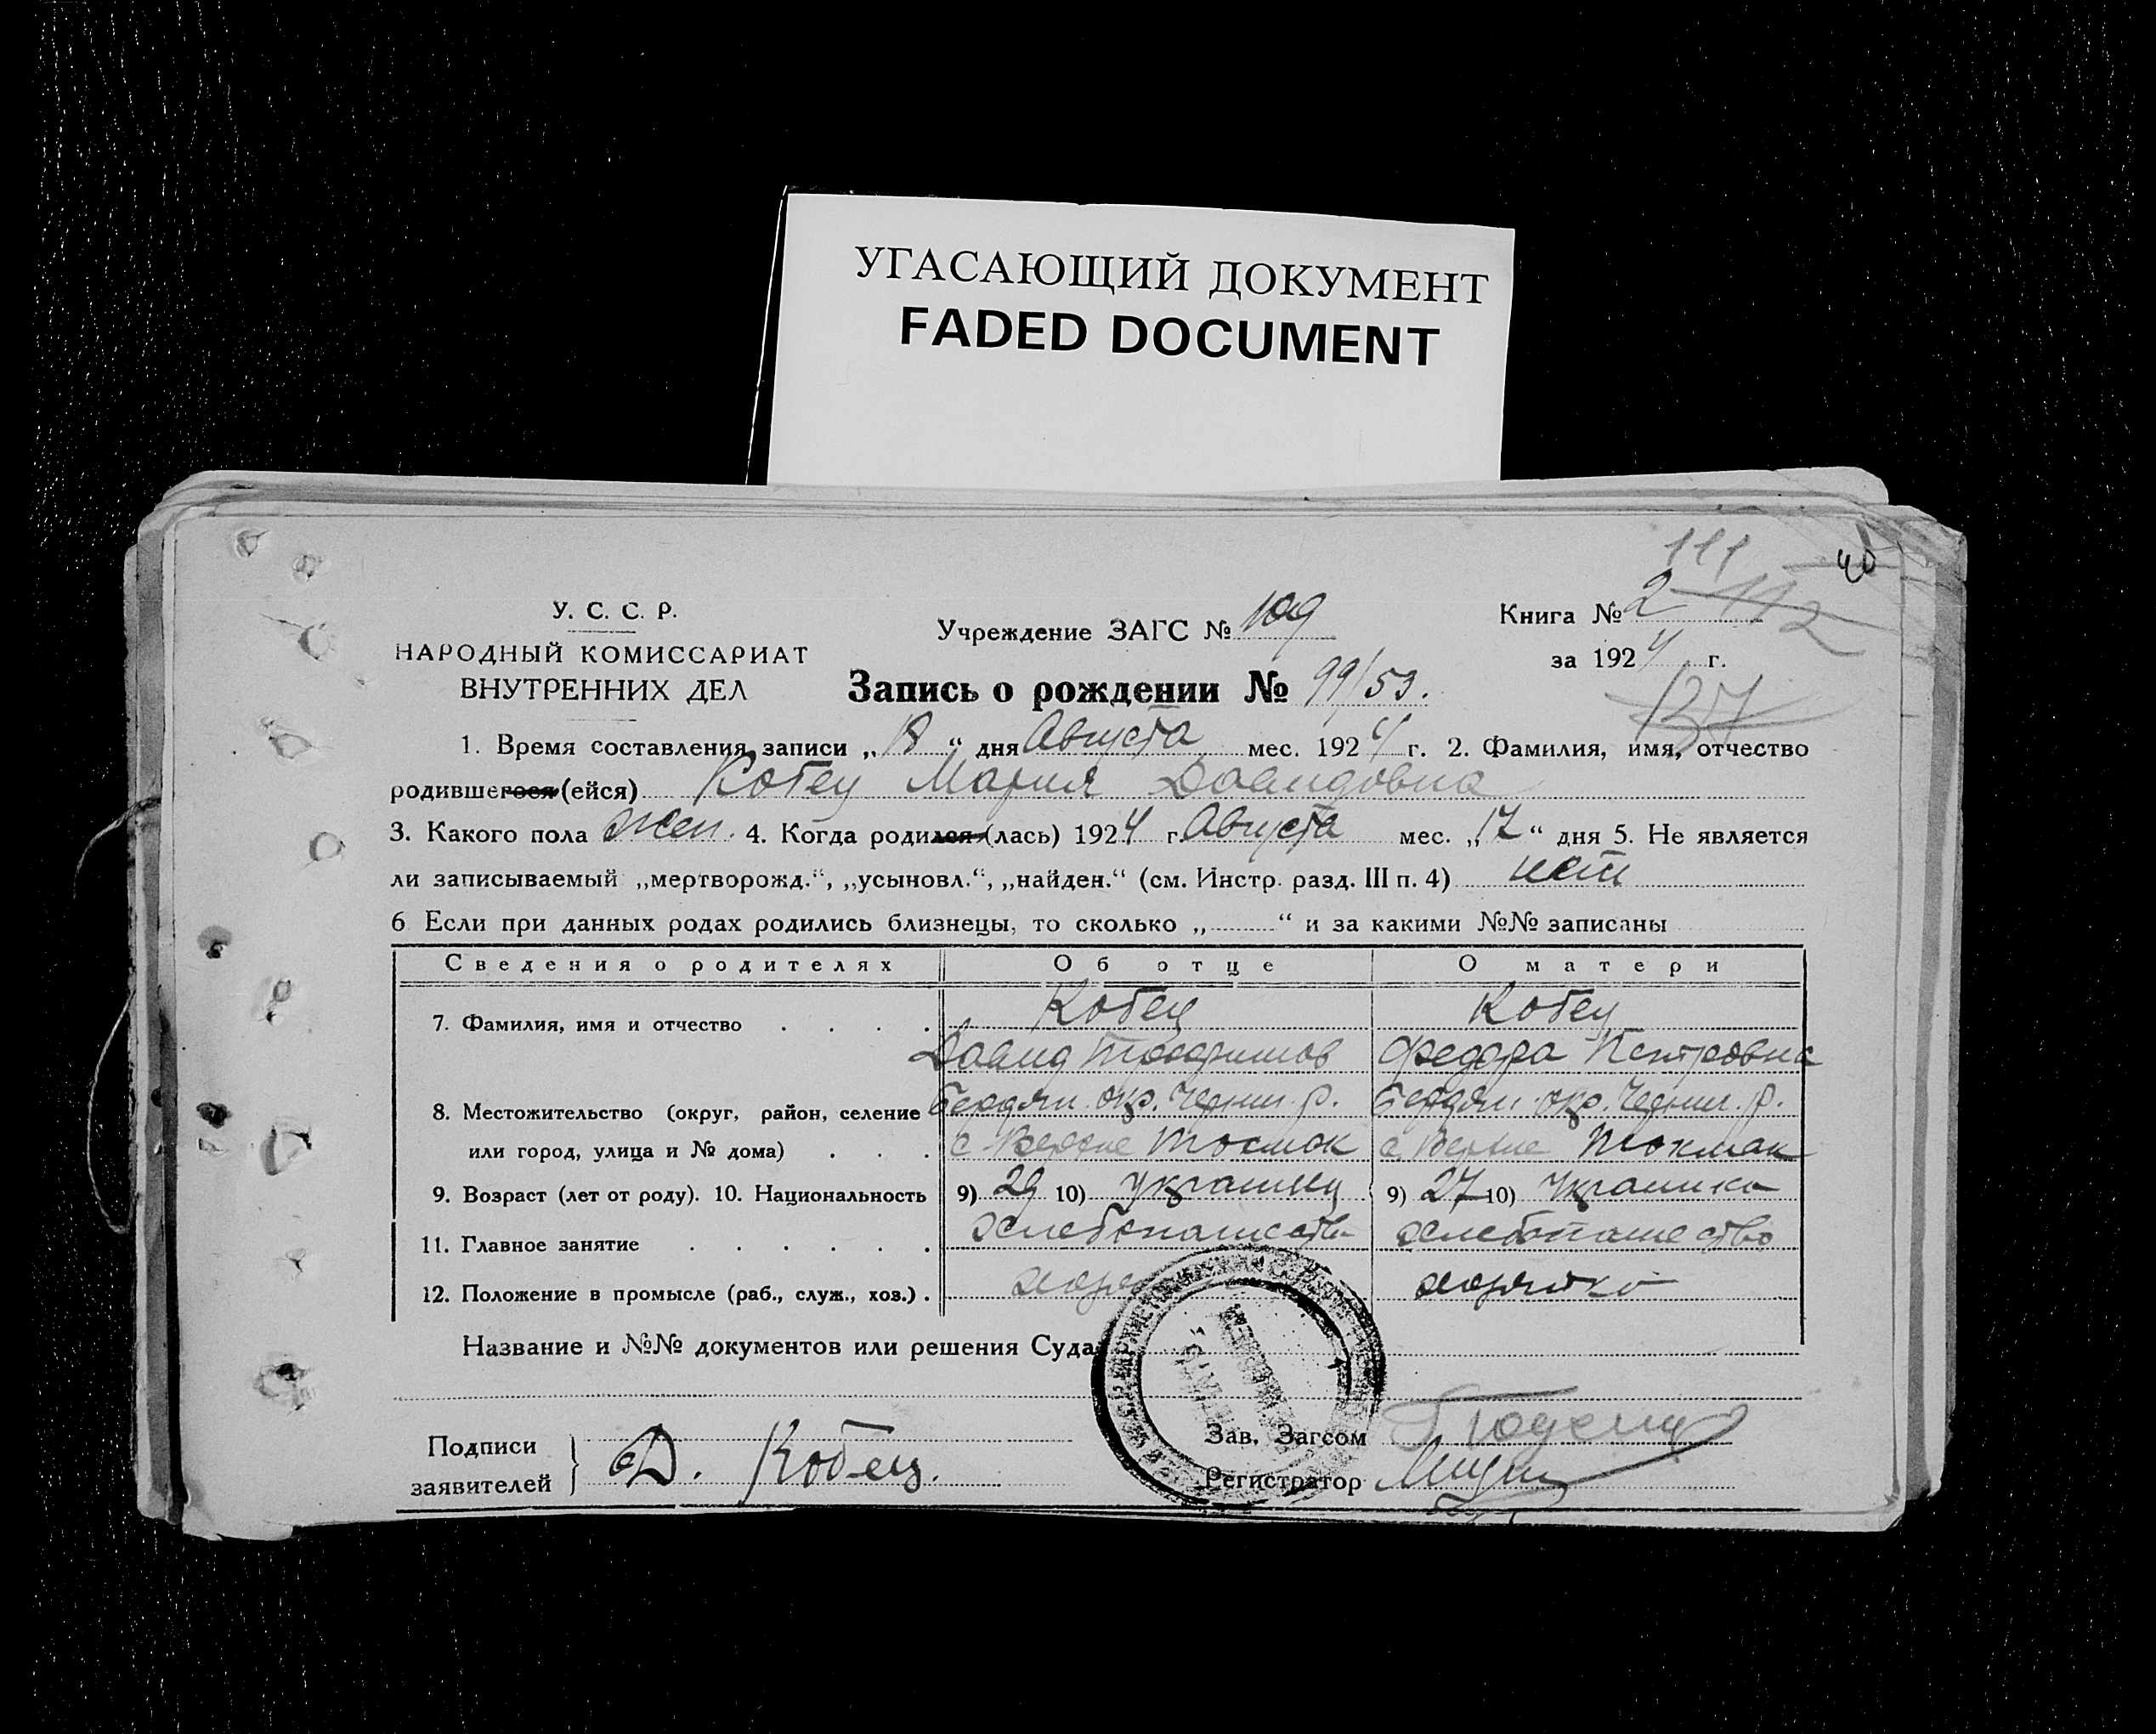 УГАСАЮЩИЙ ДОКУМЕНТ
FADED DOCUMENT
111
40
У. С. С. Р.
НАРОДНЫЙ КОМИССАРИАТ
ВНУТРЕННИХ ДЕЛ
Учреждение ЗАГС № 109
Книга № 2 112
за 1924 г.
137
Запись о рождении № 99/53.
1. Время составления записи „18“ дня Августа мес. 1924 г. 2. Фамилия, имя, отчество
родившегося (ейся) Кобец Мария Давидовна
3. Какого пола жен. 4. Когда родился (лась) 1924 г. Августа мес. „17“ дня 5. Не является
ли записываемый „мертворожд.“, „усыновл.“, „найден.“ (см. Инстр. разд. III п. 4) нет
6 Если при данных родах родились близнецы, то сколько „ “ и за какими №№ записаны
Сведения о родителях Об отце О матери
7. Фамилия, имя и отчество Кобец Кобец
Давид Федора Петровна
8. Местожительство (округ, район, селение Бердян. окр. Черниг. р. Бердян. окр. Черниг. р.
или город, улица и № дома) с Верхне Токмак с Верхне Токмак
9. Возраст (лет от роду). 10. Национальность 9) 29 10) Украинец 9) 27 10) Украинка
11. Главное занятие хлебопашество хлебопашество
12. Положение в промысле (раб., служ., хоз.)
Название и №№ документов или решения Суда
Подписи
заявителей Д. Кобец.
Зав. Загсом
Регистратор